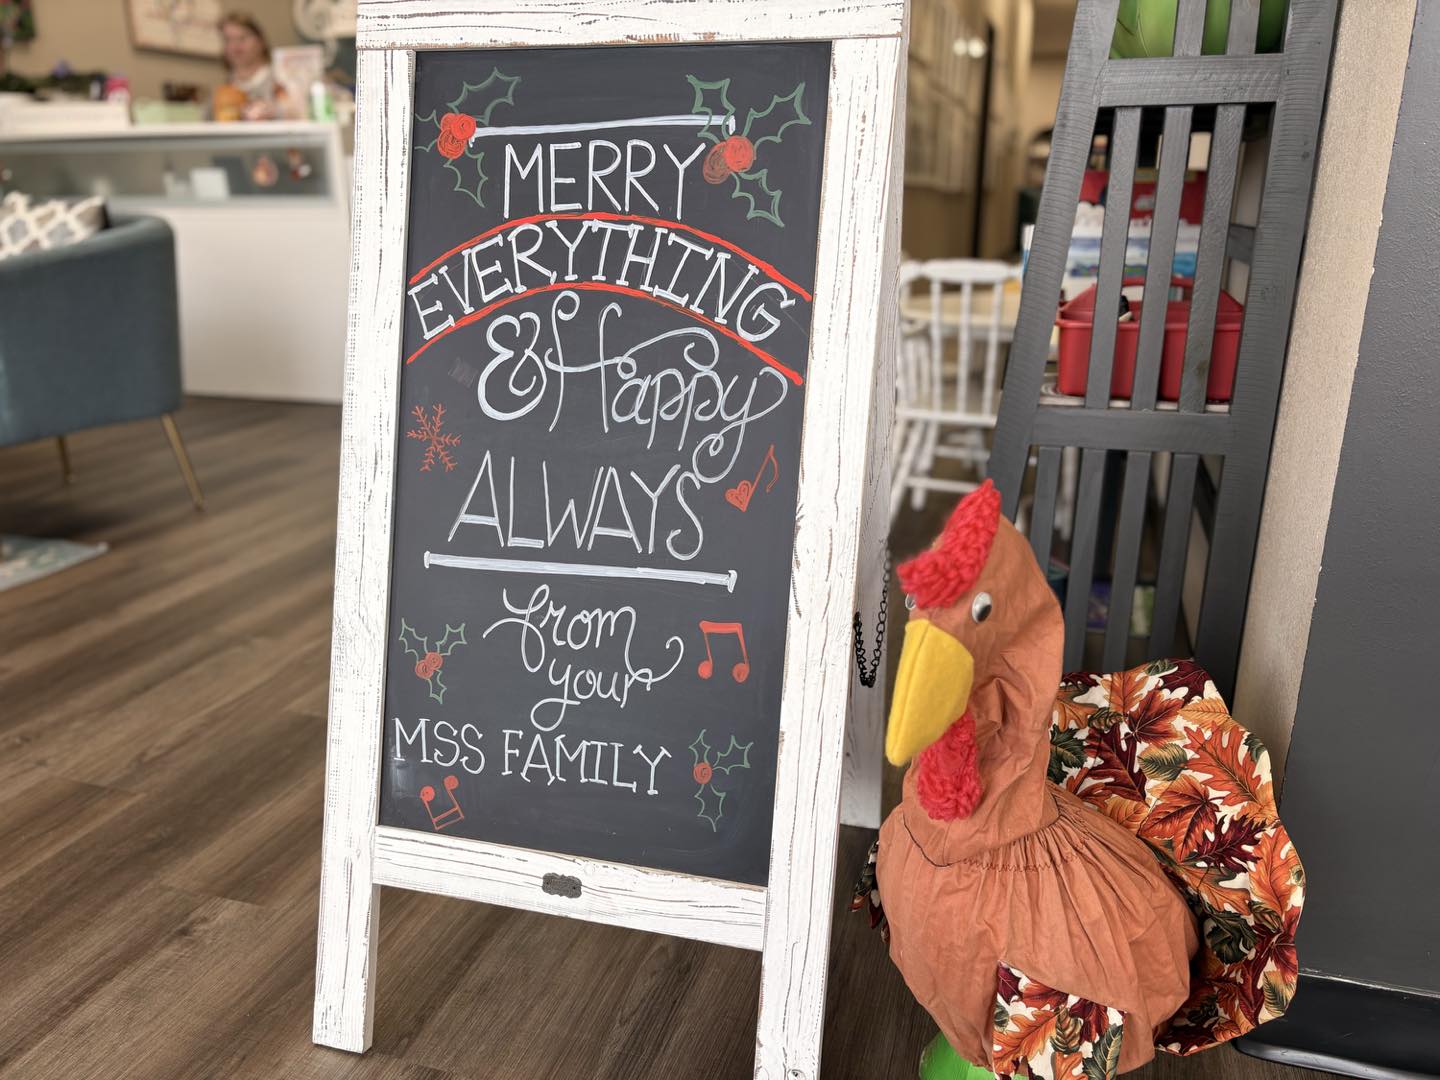 MERRY
EVERYTHING
& Happy
ALWAYS
from
your
MSS FAMILY